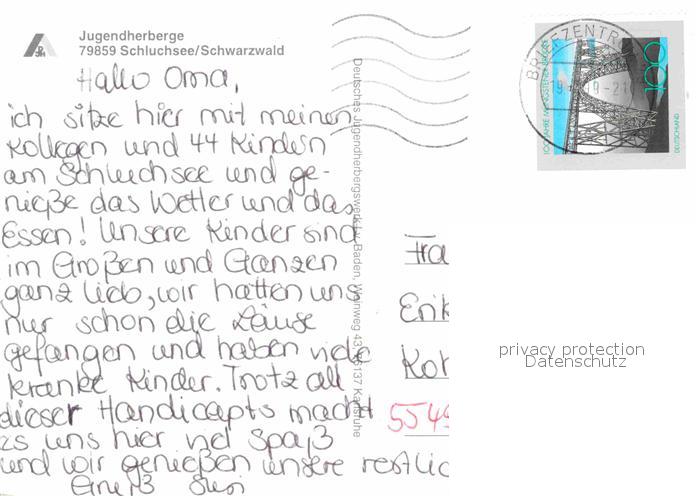 Jugendherberge
79859 Schluchsee/Schwarzwald
Hallo Oma,
ich sitze hier mit meinen
Kollegen und 44 Kindern
am Schluchsee und ge-
nieße das Wetter und das
Essen! Unsere Kinder sind
im Großen und Ganzen
ganz lieb, wir hatten uns
nur schon die Läuse
gefangen und haben viele
kranke Kinder. Trotz all
dieser Handicapts macht
es uns hier viel Spaß
und wir genießen unsere restlic
Gruß Susi
Deutsches Jugendherbergswerk Baden, Weinweg 43, 76137 Karlsruhe
BRIEFZENTR
100
DEUTSCHLAND
100 JAHRE MÜNGSTENER BRÜCKE
Fra
Erik
Koh
5549
privacy protection
Datenschutz